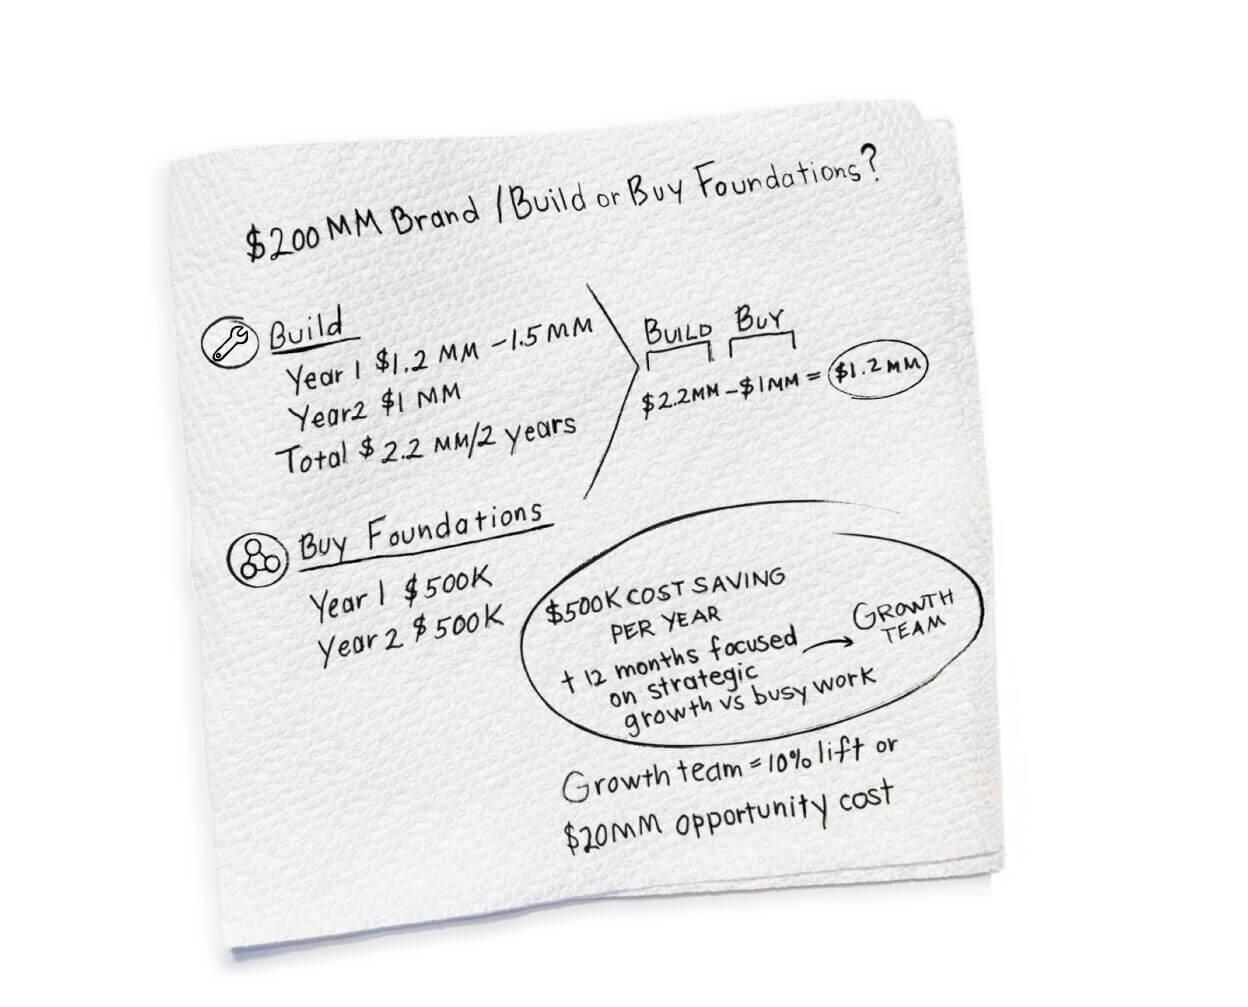 $200 MM Brand / Build or Buy Foundations?
Build
Year 1 $1.2 MM -1.5 MM
Year2 $1 MM
Total $2.2 MM/2 years
BUILD BUY
$2.2MM - $1MM = $1.2MM
Buy Foundations
Year 1 $500K
Year 2 $500K
$500K COST SAVING
PER YEAR
+ 12 months focused
on strategic
growth vs busy work
GROWTH
TEAM
Growth team = 10% lift or
$20MM opportunity cost